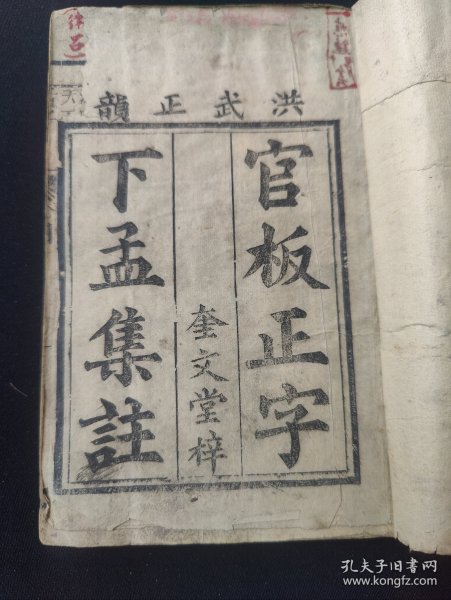 洪武正韻
官板正字
奎文堂梓
下孟集註
律呂
孔夫子旧书网
www.kongfz.com